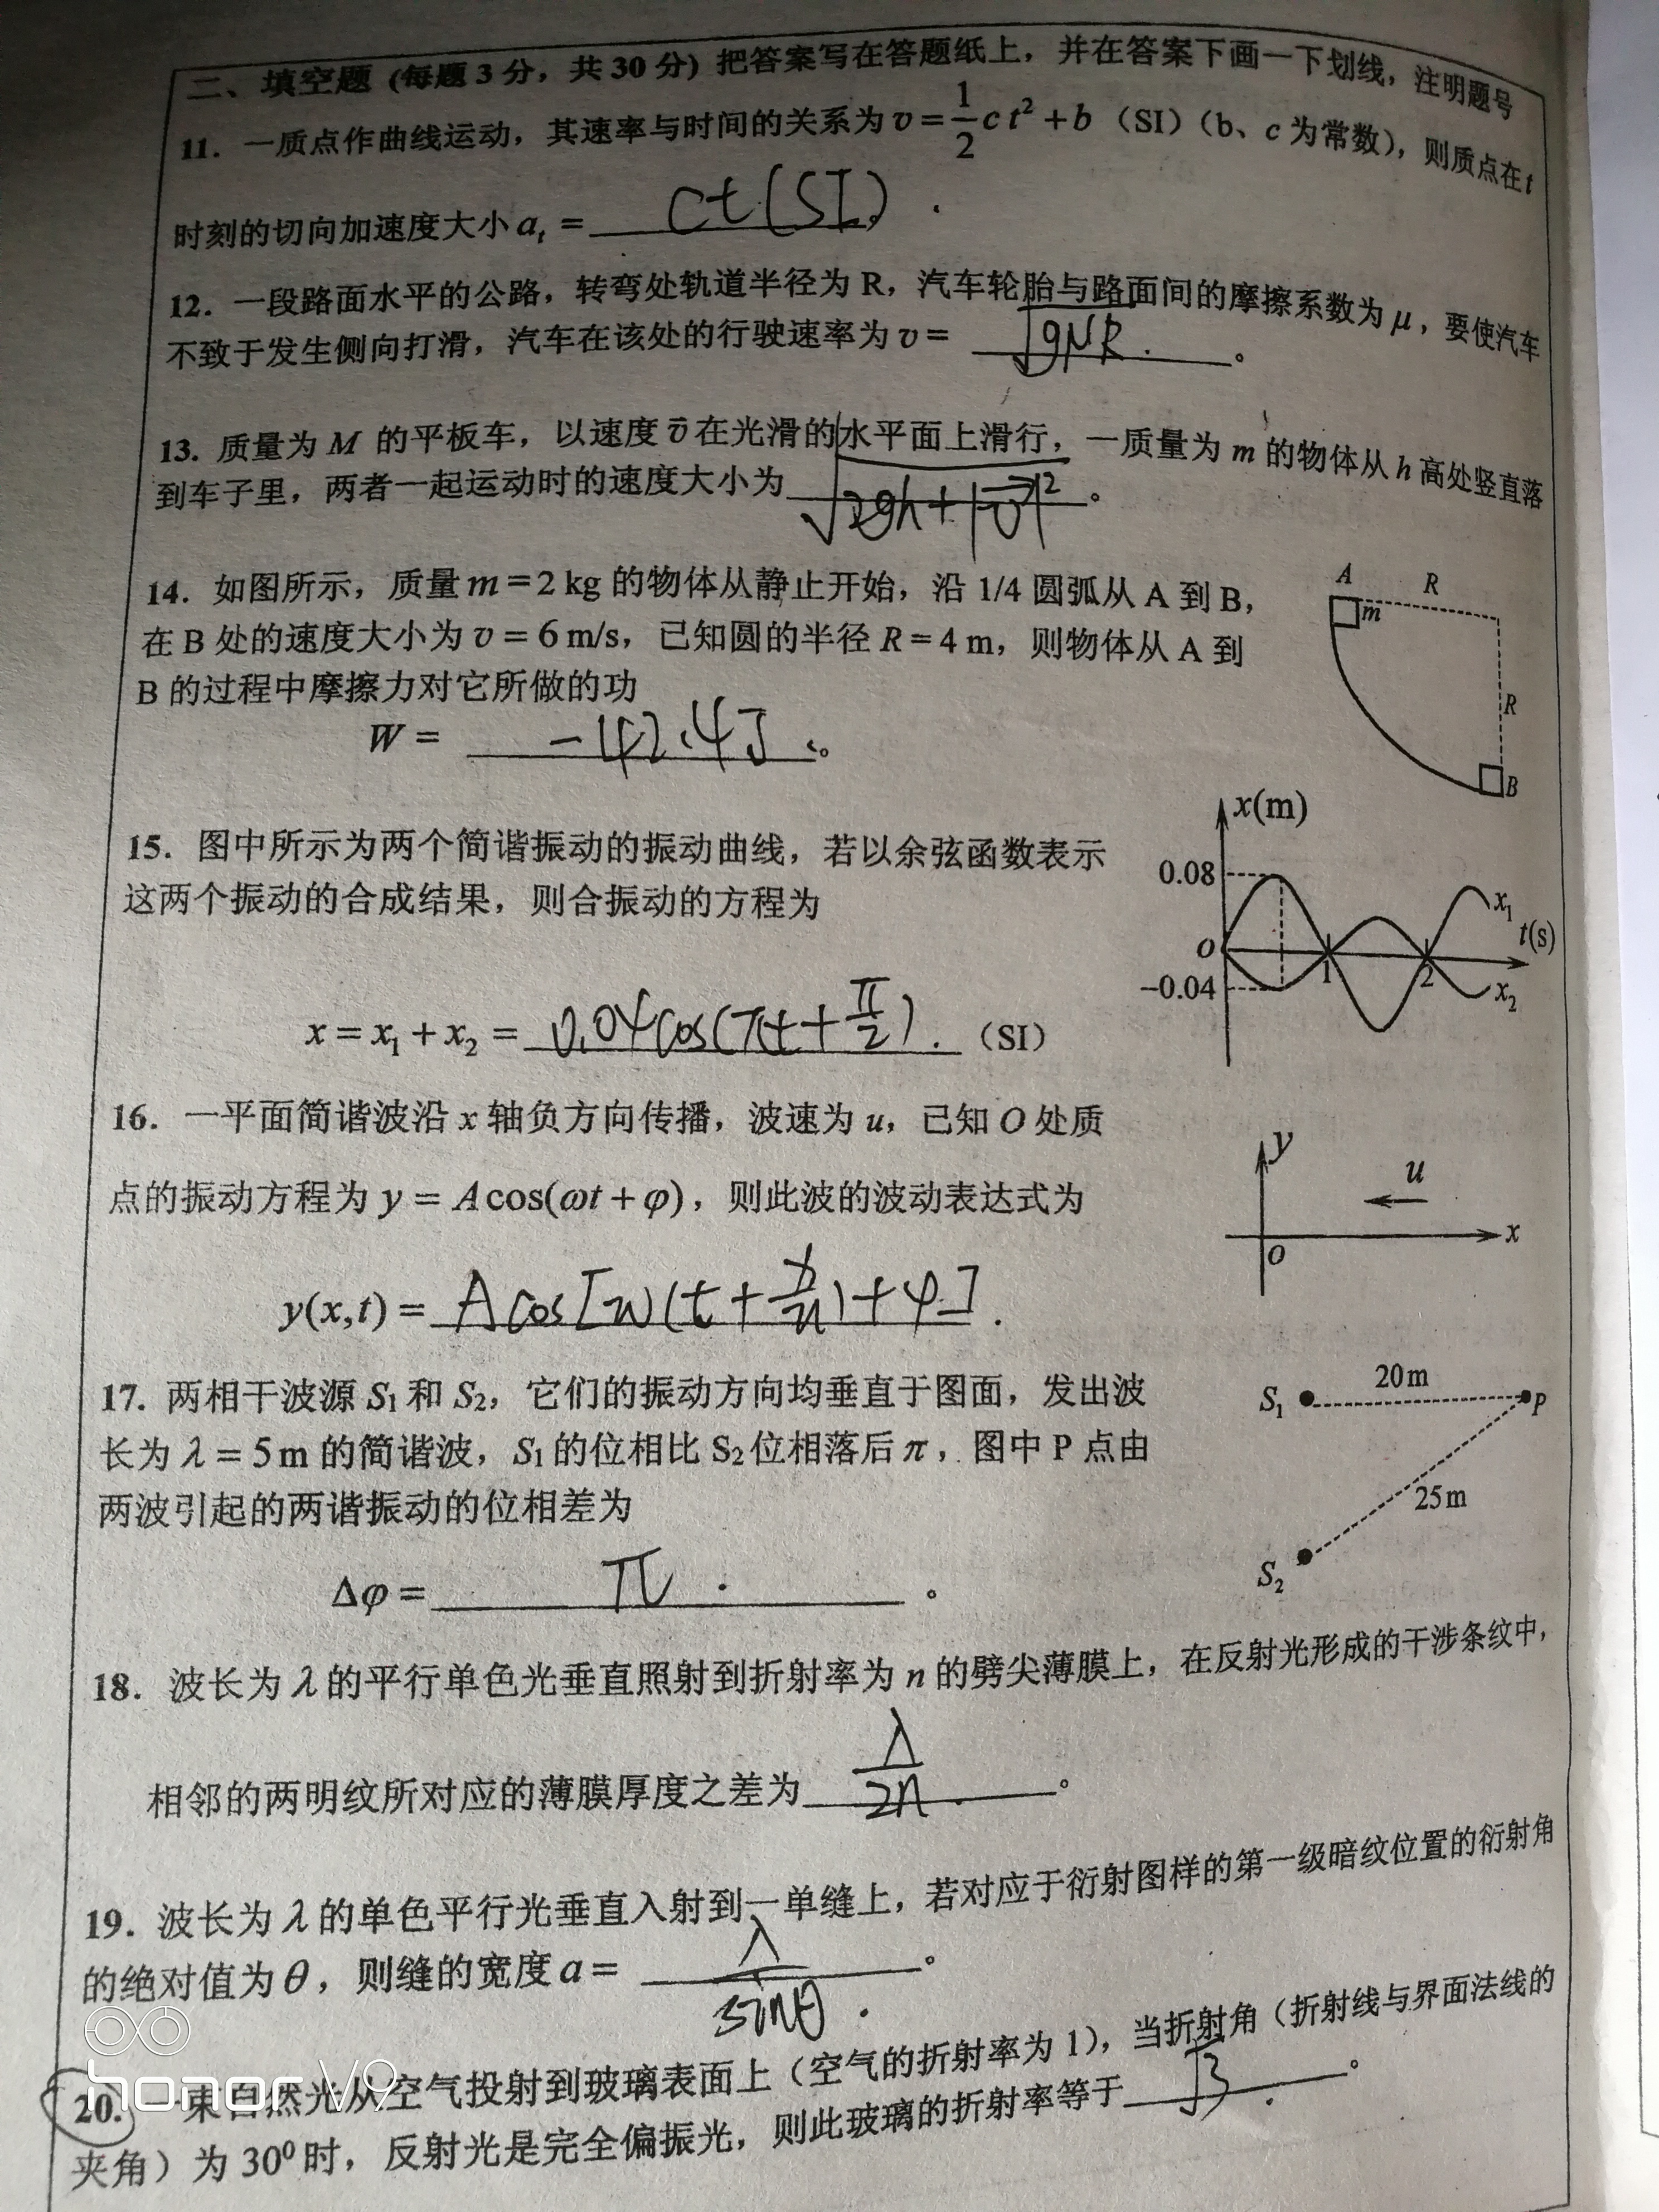 二、填空题 (每题 3 分，共 30 分) 把答案写在答题纸上，并在答案下画一下划线，注明题号
11. 一质点作曲线运动，其速率与时间的关系为 v = 1/2 c t² + b （SI）（b、c 为常数），则质点在 t
时刻的切向加速度大小 aₜ = ct(SI) .
12. 一段路面水平的公路，转弯处轨道半径为 R，汽车轮胎与路面间的摩擦系数为 μ，要使汽车
不致于发生侧向打滑，汽车在该处的行驶速率为 v = √(gμR) . 。
13. 质量为 M 的平板车，以速度 v⃗ 在光滑的水平面上滑行，一质量为 m 的物体从 h 高处竖直落
到车子里，两者一起运动时的速度大小为 √(2gh+|v⃗|²) 。
14. 如图所示，质量 m = 2 kg 的物体从静止开始，沿 1/4 圆弧从 A 到 B，
在 B 处的速度大小为 v = 6 m/s，已知圆的半径 R = 4 m，则物体从 A 到
B 的过程中摩擦力对它所做的功
W = -42.4J 。
A R
m
R
B
15. 图中所示为两个简谐振动的振动曲线，若以余弦函数表示
这两个振动的合成结果，则合振动的方程为
x = x₁ + x₂ = 0.04cos(πt + π/2) . （SI）
x(m)
0.08
x₁
t(s)
O 1 2
−0.04
x₂
16. 一平面简谐波沿 x 轴负方向传播，波速为 u，已知 O 处质
点的振动方程为 y = A cos(ωt + φ)，则此波的波动表达式为
y(x,t) = A cos[ω(t + x/u) + φ] .
y
u
x
O
17. 两相干波源 S₁ 和 S₂，它们的振动方向均垂直于图面，发出波
长为 λ = 5 m 的简谐波，S₁ 的位相比 S₂ 位相落后 π，图中 P 点由
两波引起的两谐振动的位相差为
Δφ = π . 。
20 m
S₁ P
25 m
S₂
18. 波长为 λ 的平行单色光垂直照射到折射率为 n 的劈尖薄膜上，在反射光形成的干涉条纹中，
相邻的两明纹所对应的薄膜厚度之差为 λ/2n . 。
19. 波长为 λ 的单色平行光垂直入射到一单缝上，若对应于衍射图样的第一级暗纹位置的衍射角
的绝对值为 θ，则缝的宽度 a = λ/sinθ . 。
20. 一束自然光从空气投射到玻璃表面上（空气的折射率为 1），当折射角（折射线与界面法线的
夹角）为 30⁰ 时，反射光是完全偏振光，则此玻璃的折射率等于 √3 . 。
honor V9